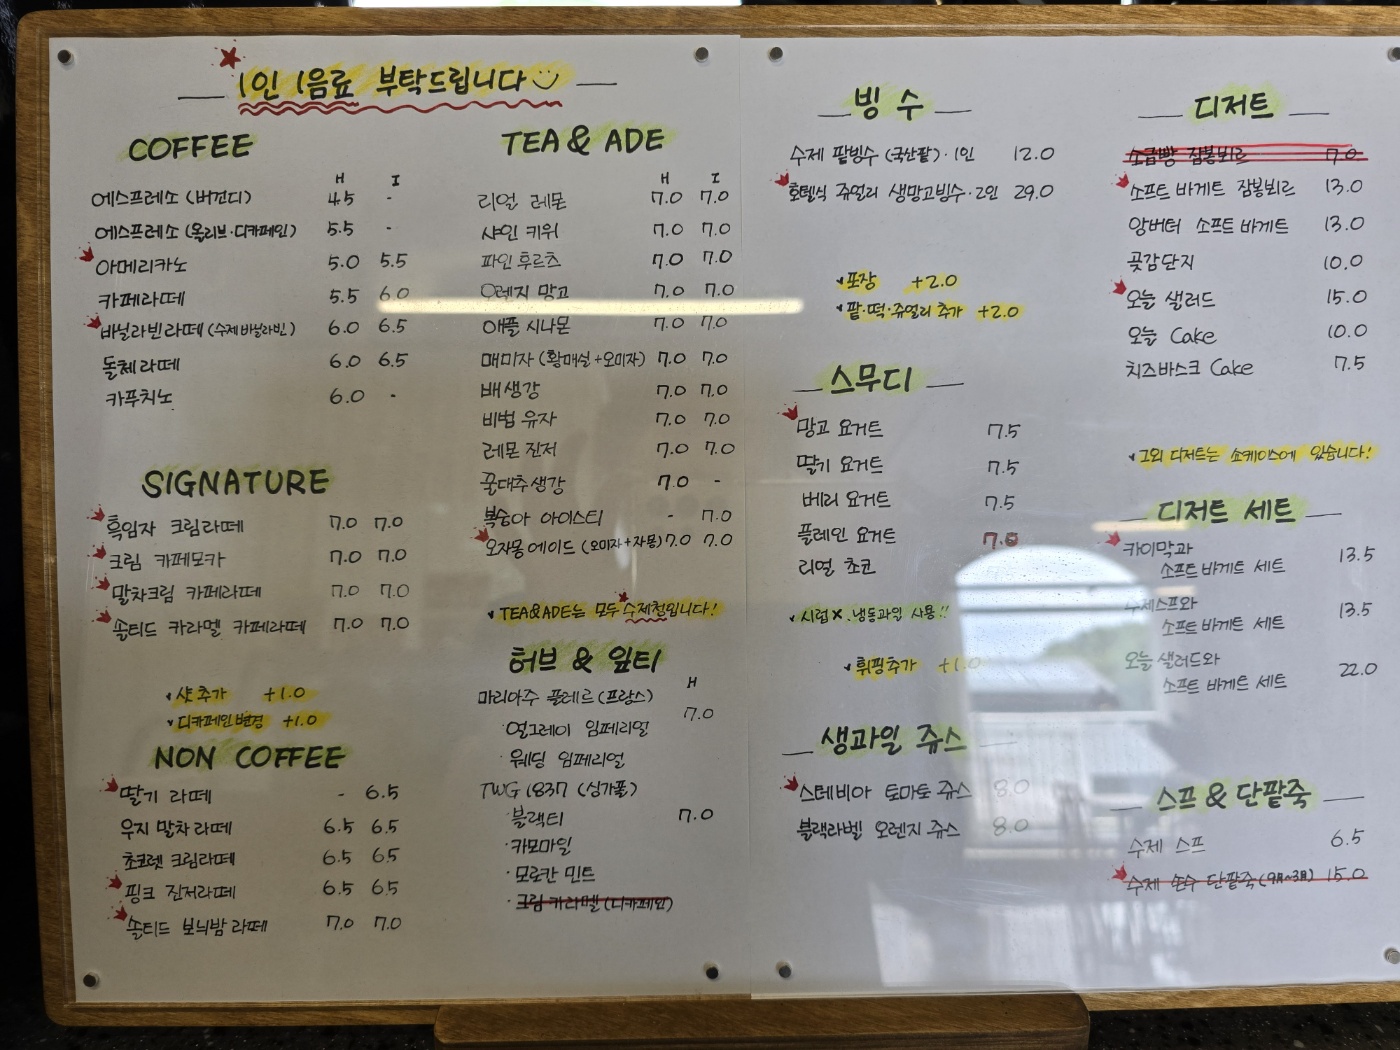 1인 1음료 부탁드립니다
COFFEE
H I
에스프레소 (버건디) 4.5 -
에스프레소 (올리브·디카페인) 5.5 -
아메리카노 5.0 5.5
카페라떼 5.5 6.0
바닐라빈라떼 (수제바닐라빈) 6.0 6.5
돌체라떼 6.0 6.5
카푸치노 6.0 -
SIGNATURE
흑임자 크림라떼 7.0 7.0
크림 카페모카 7.0 7.0
말차크림 카페라떼 7.0 7.0
솔티드 카라멜 카페라떼 7.0 7.0
샷추가 +1.0
디카페인변경 +1.0
NON COFFEE
딸기 라떼 - 6.5
우지 말차 라떼 6.5 6.5
초코렛 크림라떼 6.5 6.5
핑크 진저라떼 6.5 6.5
솔티드 보늬밤 라떼 7.0 7.0
TEA & ADE
H I
리얼 레몬 7.0 7.0
샤인 키위 7.0 7.0
파인후르츠 7.0 7.0
오렌지 망고 7.0 7.0
애플 시나몬 7.0 7.0
매미자 (황매실+오미자) 7.0 7.0
배생강 7.0 7.0
비법 유자 7.0 7.0
레몬 진저 7.0 7.0
꿀대추생강 7.0 -
복숭아 아이스티 - 7.0
오자몽에이드 (오미자+자몽) 7.0 7.0
TEA&ADE는 모두 수제청입니다!
허브 & 잎티
H
마리아주 플레르 (프랑스) 7.0
·얼그레이 임페리얼
·웨딩 임페리얼
TWG 1837 (싱가폴) 7.0
·블랙티
·카모마일
·모로칸 민트
·크림 카라멜 (디카페인)
빙 수
수제 팥빙수 (국산팥)·1인 12.0
호텔식 쥬얼리 생망고빙수·2인 29.0
포장 +2.0
팥·떡·쥬얼리 추가 +2.0
스무디
망고 요거트 7.5
딸기 요거트 7.5
베리 요거트 7.5
플레인 요거트 7.5
리얼 초코
시럽X. 냉동과일 사용!!
휘핑추가 +1.0
생과일 쥬스
스테비아 토마토 쥬스 8.0
블랙라벨 오렌지 쥬스 8.0
디저트
소금빵 잠봉뵈르 7.0
소프트 바게트 잠봉뵈르 13.0
앙버터 소프트 바게트 13.0
곶감단지 10.0
오늘 샐러드 15.0
오늘 Cake 10.0
치즈바스크 Cake 7.5
그외 디저트는 쇼케이스에 있습니다!
디저트 세트
카이막과
소프트 바게트 세트 13.5
수제스프와
소프트 바게트 세트 13.5
오늘 샐러드와
소프트 바게트 세트 22.0
스프 & 단팥죽
수제 스프 6.5
수제 손수 단팥죽 (9月~3月) 15.0